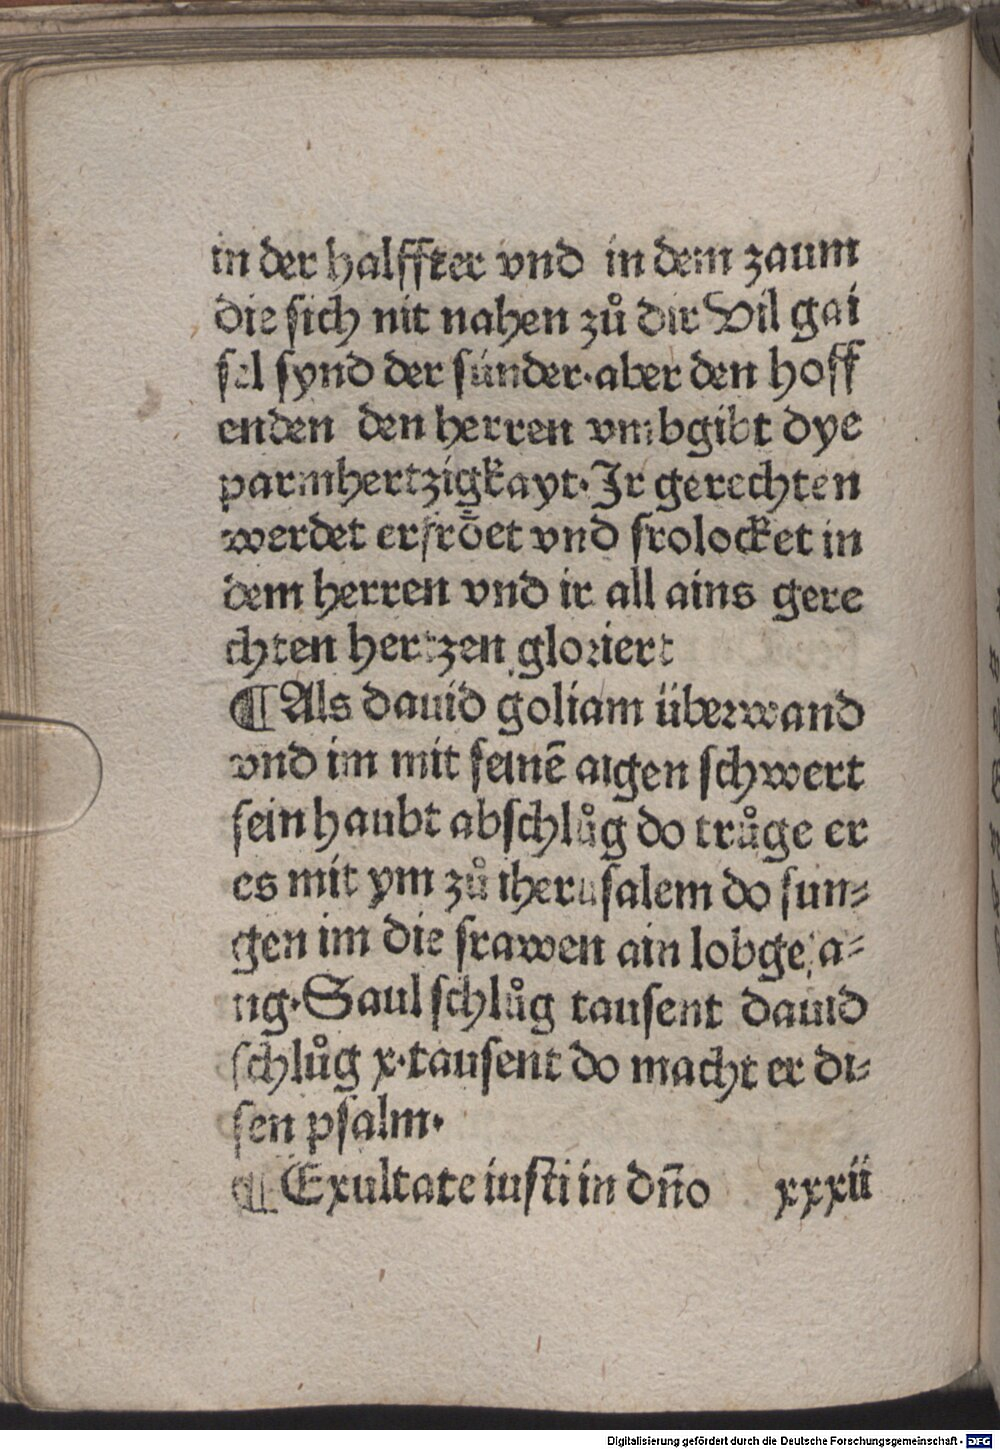 in der halffter vnd in dem zaum
die sich nit nahen zů dir Vil gai
sel synd der sünder·aber den hoff
enden den herren vmbgibt dye
parmhertzigkayt·Jr gerechten
werdet erfröet vnd frolocket in
dem herren vnd ir all ains gere
chten hertzen gloriert
¶Als dauid goliam überwand
vnd im mit seinē aigen schwert
sein haubt abschlůg do trůge er
es mit ym zů iherusalem do sun⸗
gen im die frawen ain lobgesa⸗
ng·Saul schlůg tausent dauid
schlůg x·tausent do macht er di⸗
sen psalm·
¶Exultate iusti in dn̄o xxxii
Digitalisierung gefördert durch die Deutsche Forschungsgemeinschaft - DFG